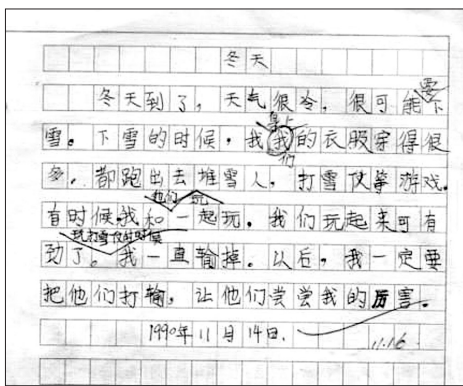 冬天
冬天到了，天气很冷，很可能要下
雪。下雪的时候，我我们的衣服穿得很
多，都跑出去堆雪人，打雪仗等游戏。
有时候我和他们玩一起玩。我们玩起来可有
劲了。玩打雪仗的时候我一直输掉。以后，我一定要
把他们打输，让他们尝尝我的厉害。
1990年11月14日.
11.16